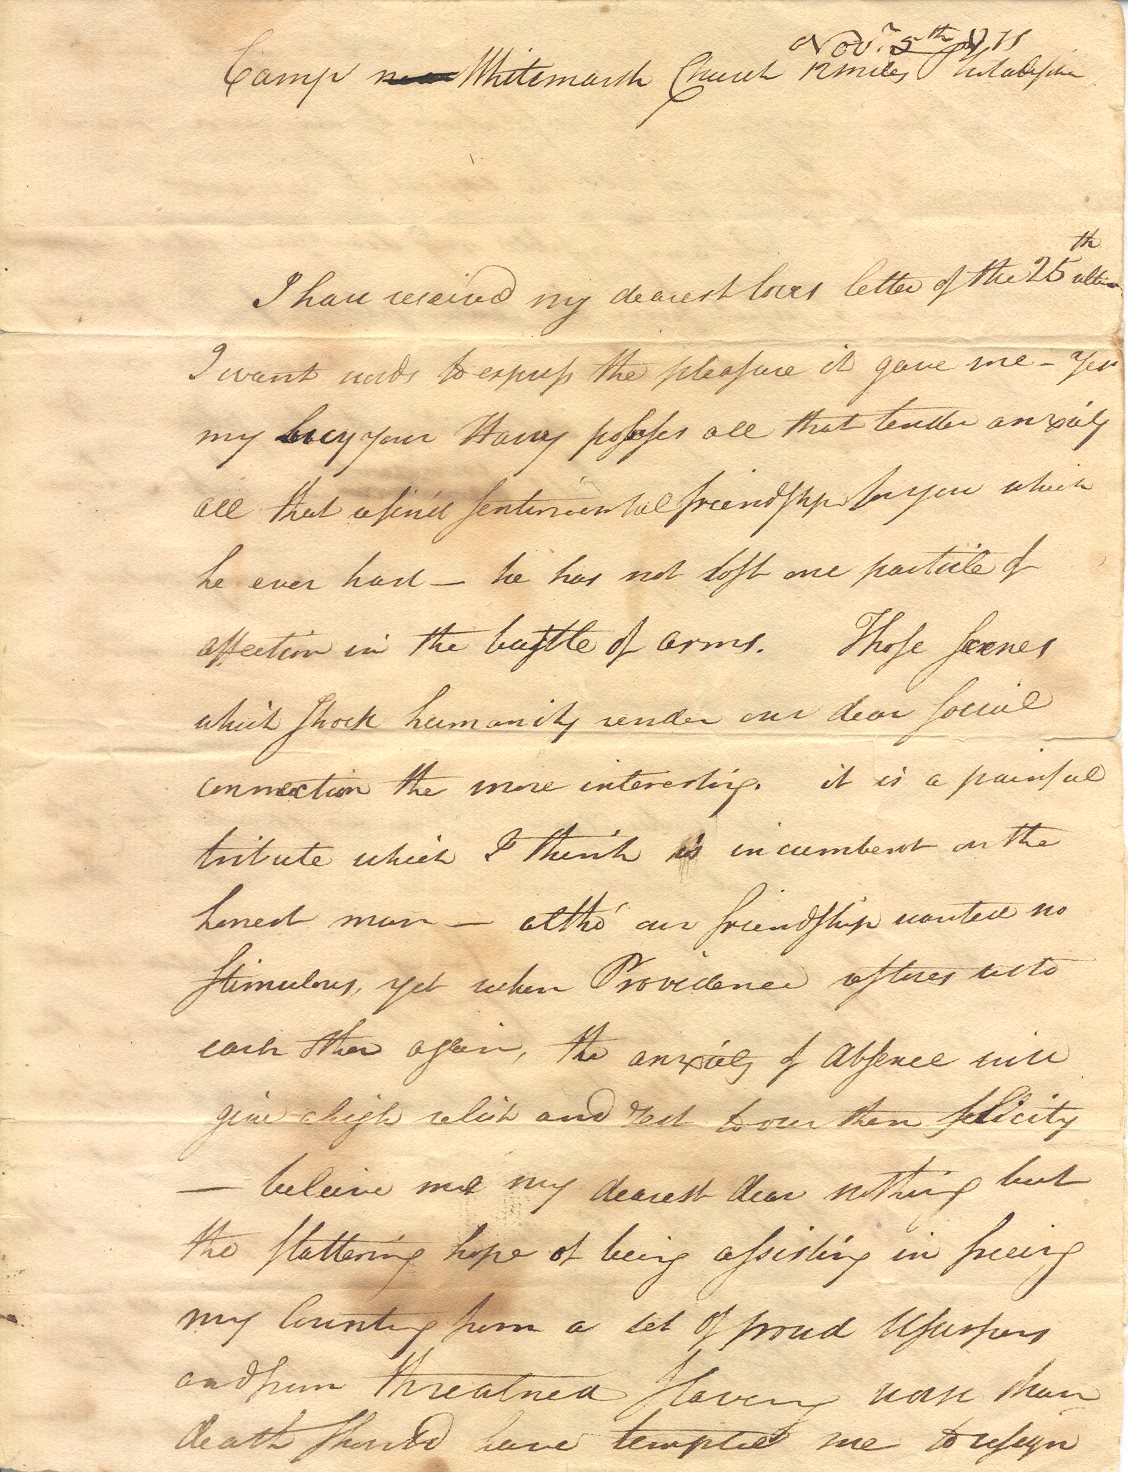 Novr. 5th 1777
Camp near Whitemarsh Church 12 miles Philadelphia
I have received my dearest loves letter of the 25th ultimo
I want words to express the pleasure it gave me – Yes
my Lucy your Harry possesses all that tender anxiety
all that refin'd sentimental friendship for you which
he ever had – he has not lost one particle of
affection in the bustle of arms. Those scenes
which shock humanity render our dear social
connection the more interesting. it is a painful
tribute which I think is incumbent on the
honest man – altho' our friendship wanted no
stimulous, yet when Providence restores us to
each other again, the anxiety of Absence will
give a high relish and zest to our then felicity
– beleive me my dearest dear nothing but
the flattering hope of being assisting in freeing
my Country from a set of proud Usurpers
and from threatned Slavery worse than
death should have tempted me to resign